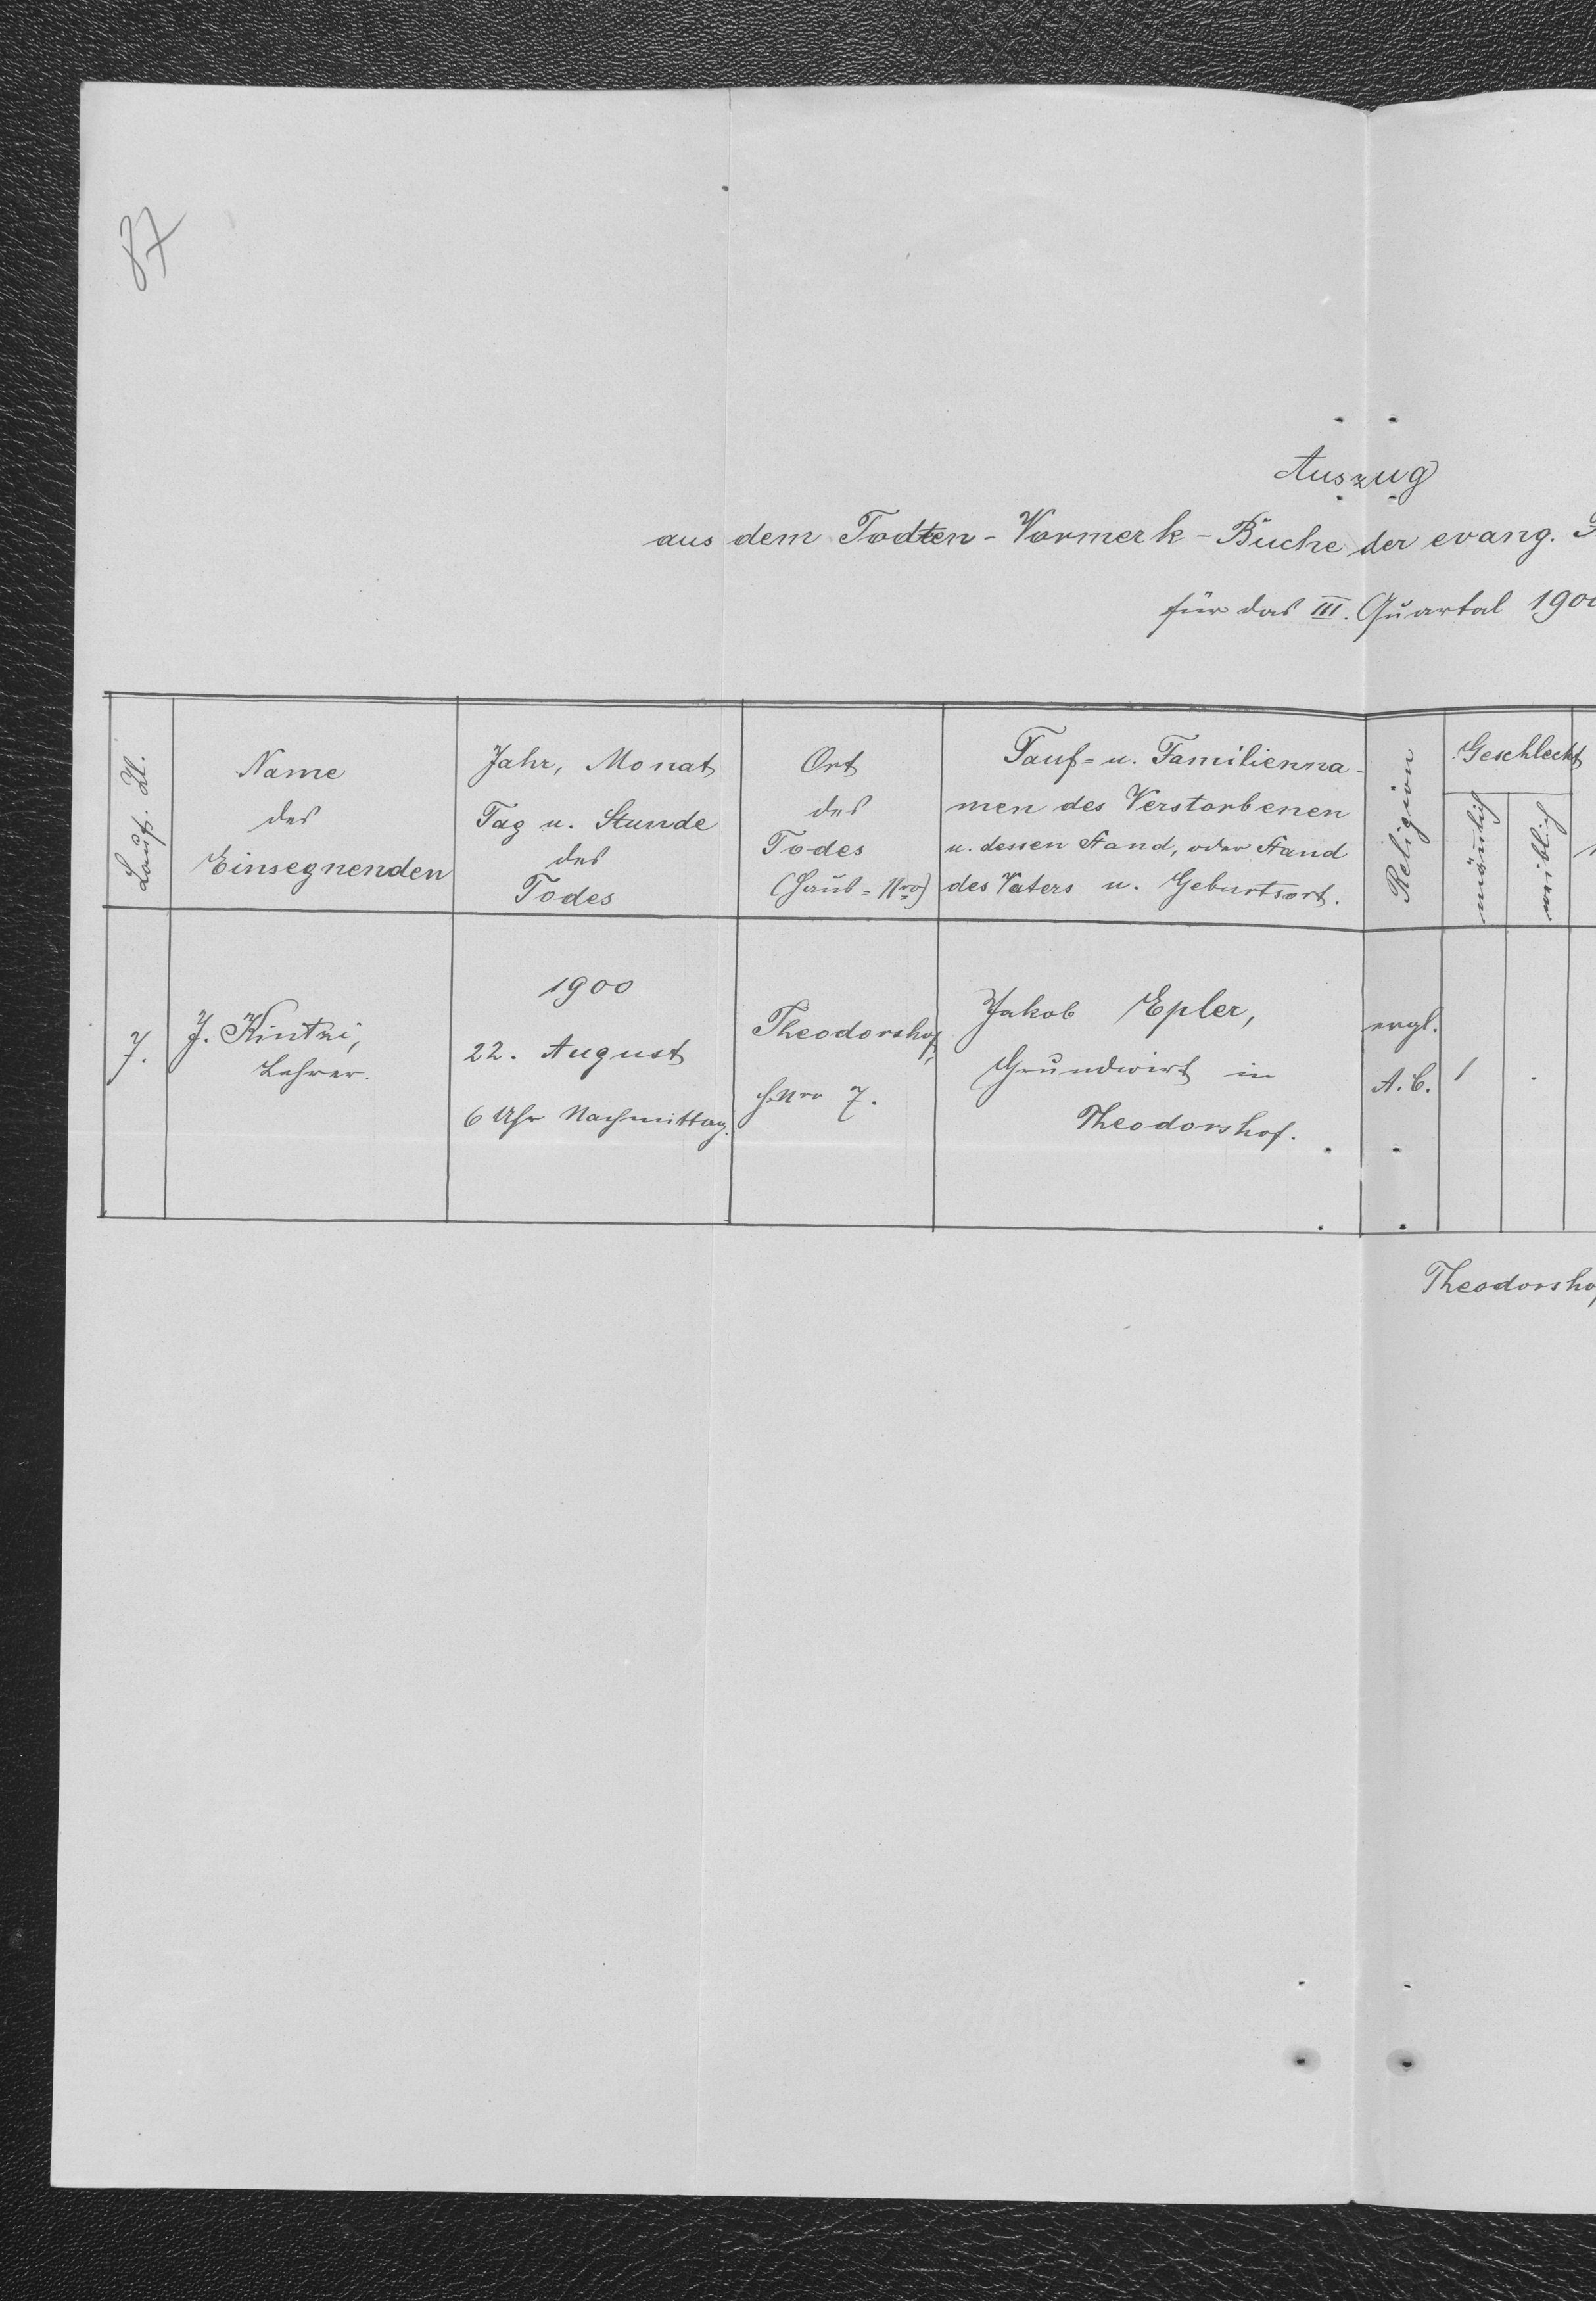 87
Auszug
aus dem Todten-Vormerk-Buche der evang.
für das III. Quartal 190
Lauf. Zl.
Name
des
Einsegnenden
Jahr, Monat
Tag u. Stunde
des
Todes
Ort
des
Todes
(Haus-Nro)
Tauf- u. Familienna-
men des Verstorbenen
u. dessen Stand, oder Stand
des Vaters u. Geburtsort.
Religion
Geschlecht
männlich
weiblich
7.
J. Kintzi,
Lehrer.
1900
22. August
6 Uhr Nachmittag.
Theodorshof,
HNro 7.
Jakob Epler,
Grundwirt in
Theodorshof.
evgl.
A. C.
1
Theodorsho